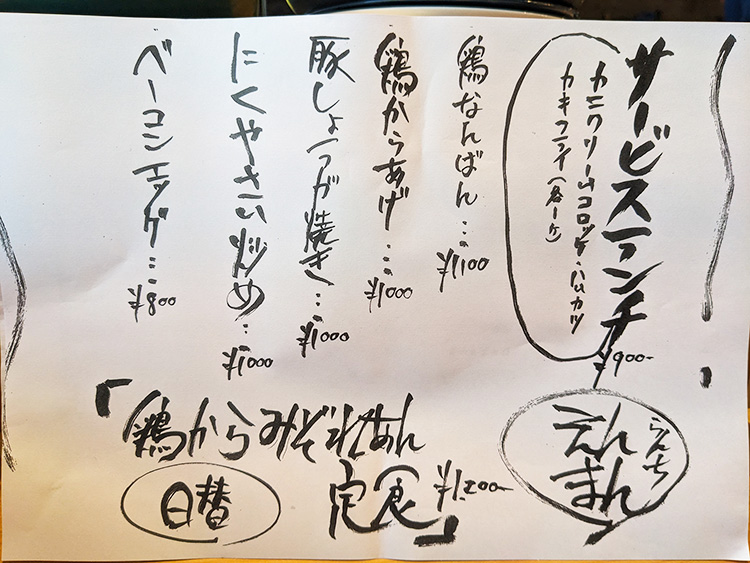 サービスランチ ¥900-
カニクリームコロッケ・ハムカツ
カキフライ(各一ケ)
鶏なんばん…¥1,100
鶏からあげ…¥1000
豚しょうが焼き…¥1000
にくやさい炒め…¥1000
ベーコンエッグ…¥800
らんち
えん
まん
日替
「鶏からみぞれあん
定食」¥1,200-